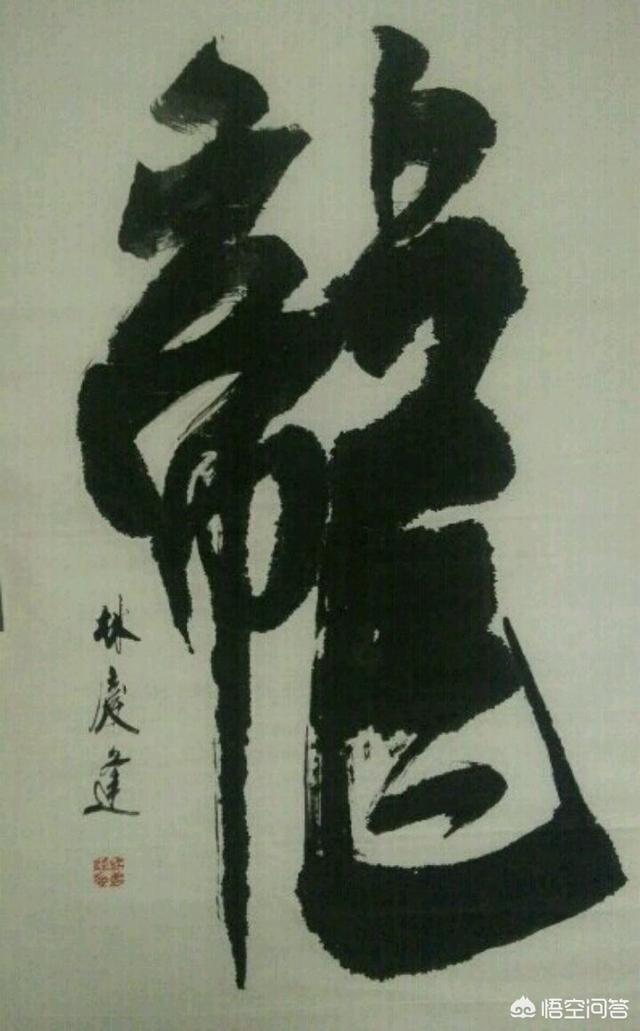 龍
林慶逢
悟空问答